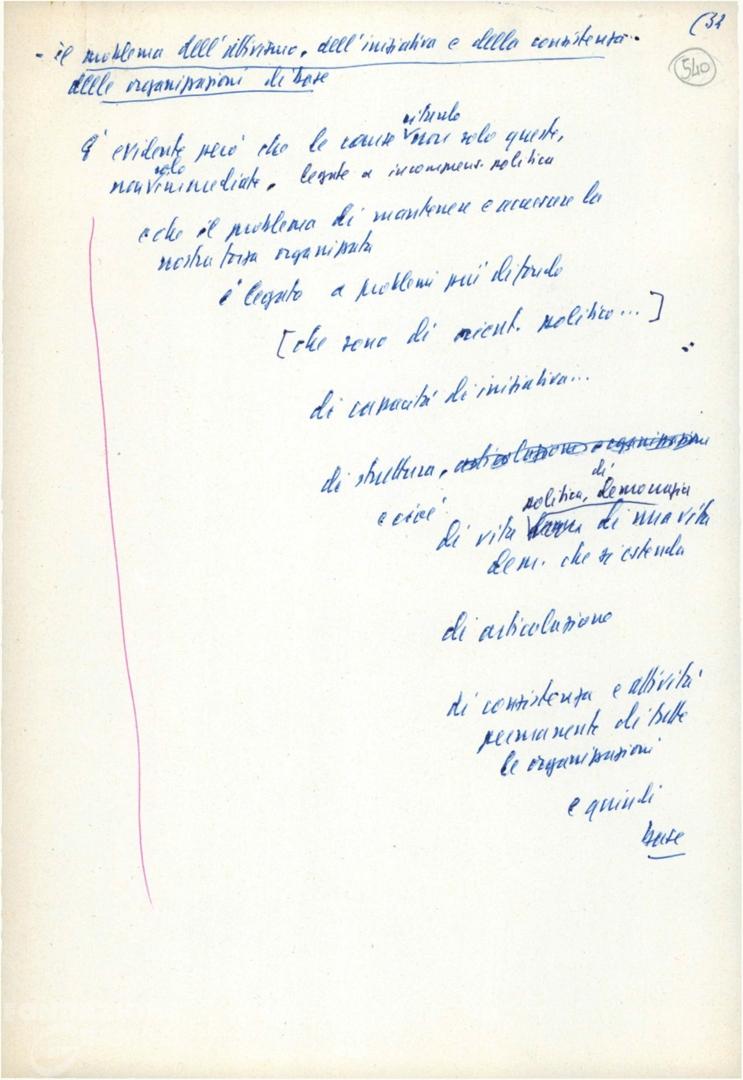 (32
540
- il problema dell'attivismo, dell'iniziativa e della consistenza
delle organizzazioni di base
E' evidente però che le cause non solo queste,
non solo immediate, legate a incommens. politica
e che il problema di mantenere e accrescere la
nostra forza organizzata
è legato a problemi più di fondo
[che sono di orient. politico...]
di capacità di iniziativa...
di struttura, articolazione e organizzazione
e cioè
di
politica, democrazia
di vita di una vita
dem. che si estenda
di articolazione
di consistenza e attività
permanente di tutte
le organizzazioni
e quindi
base